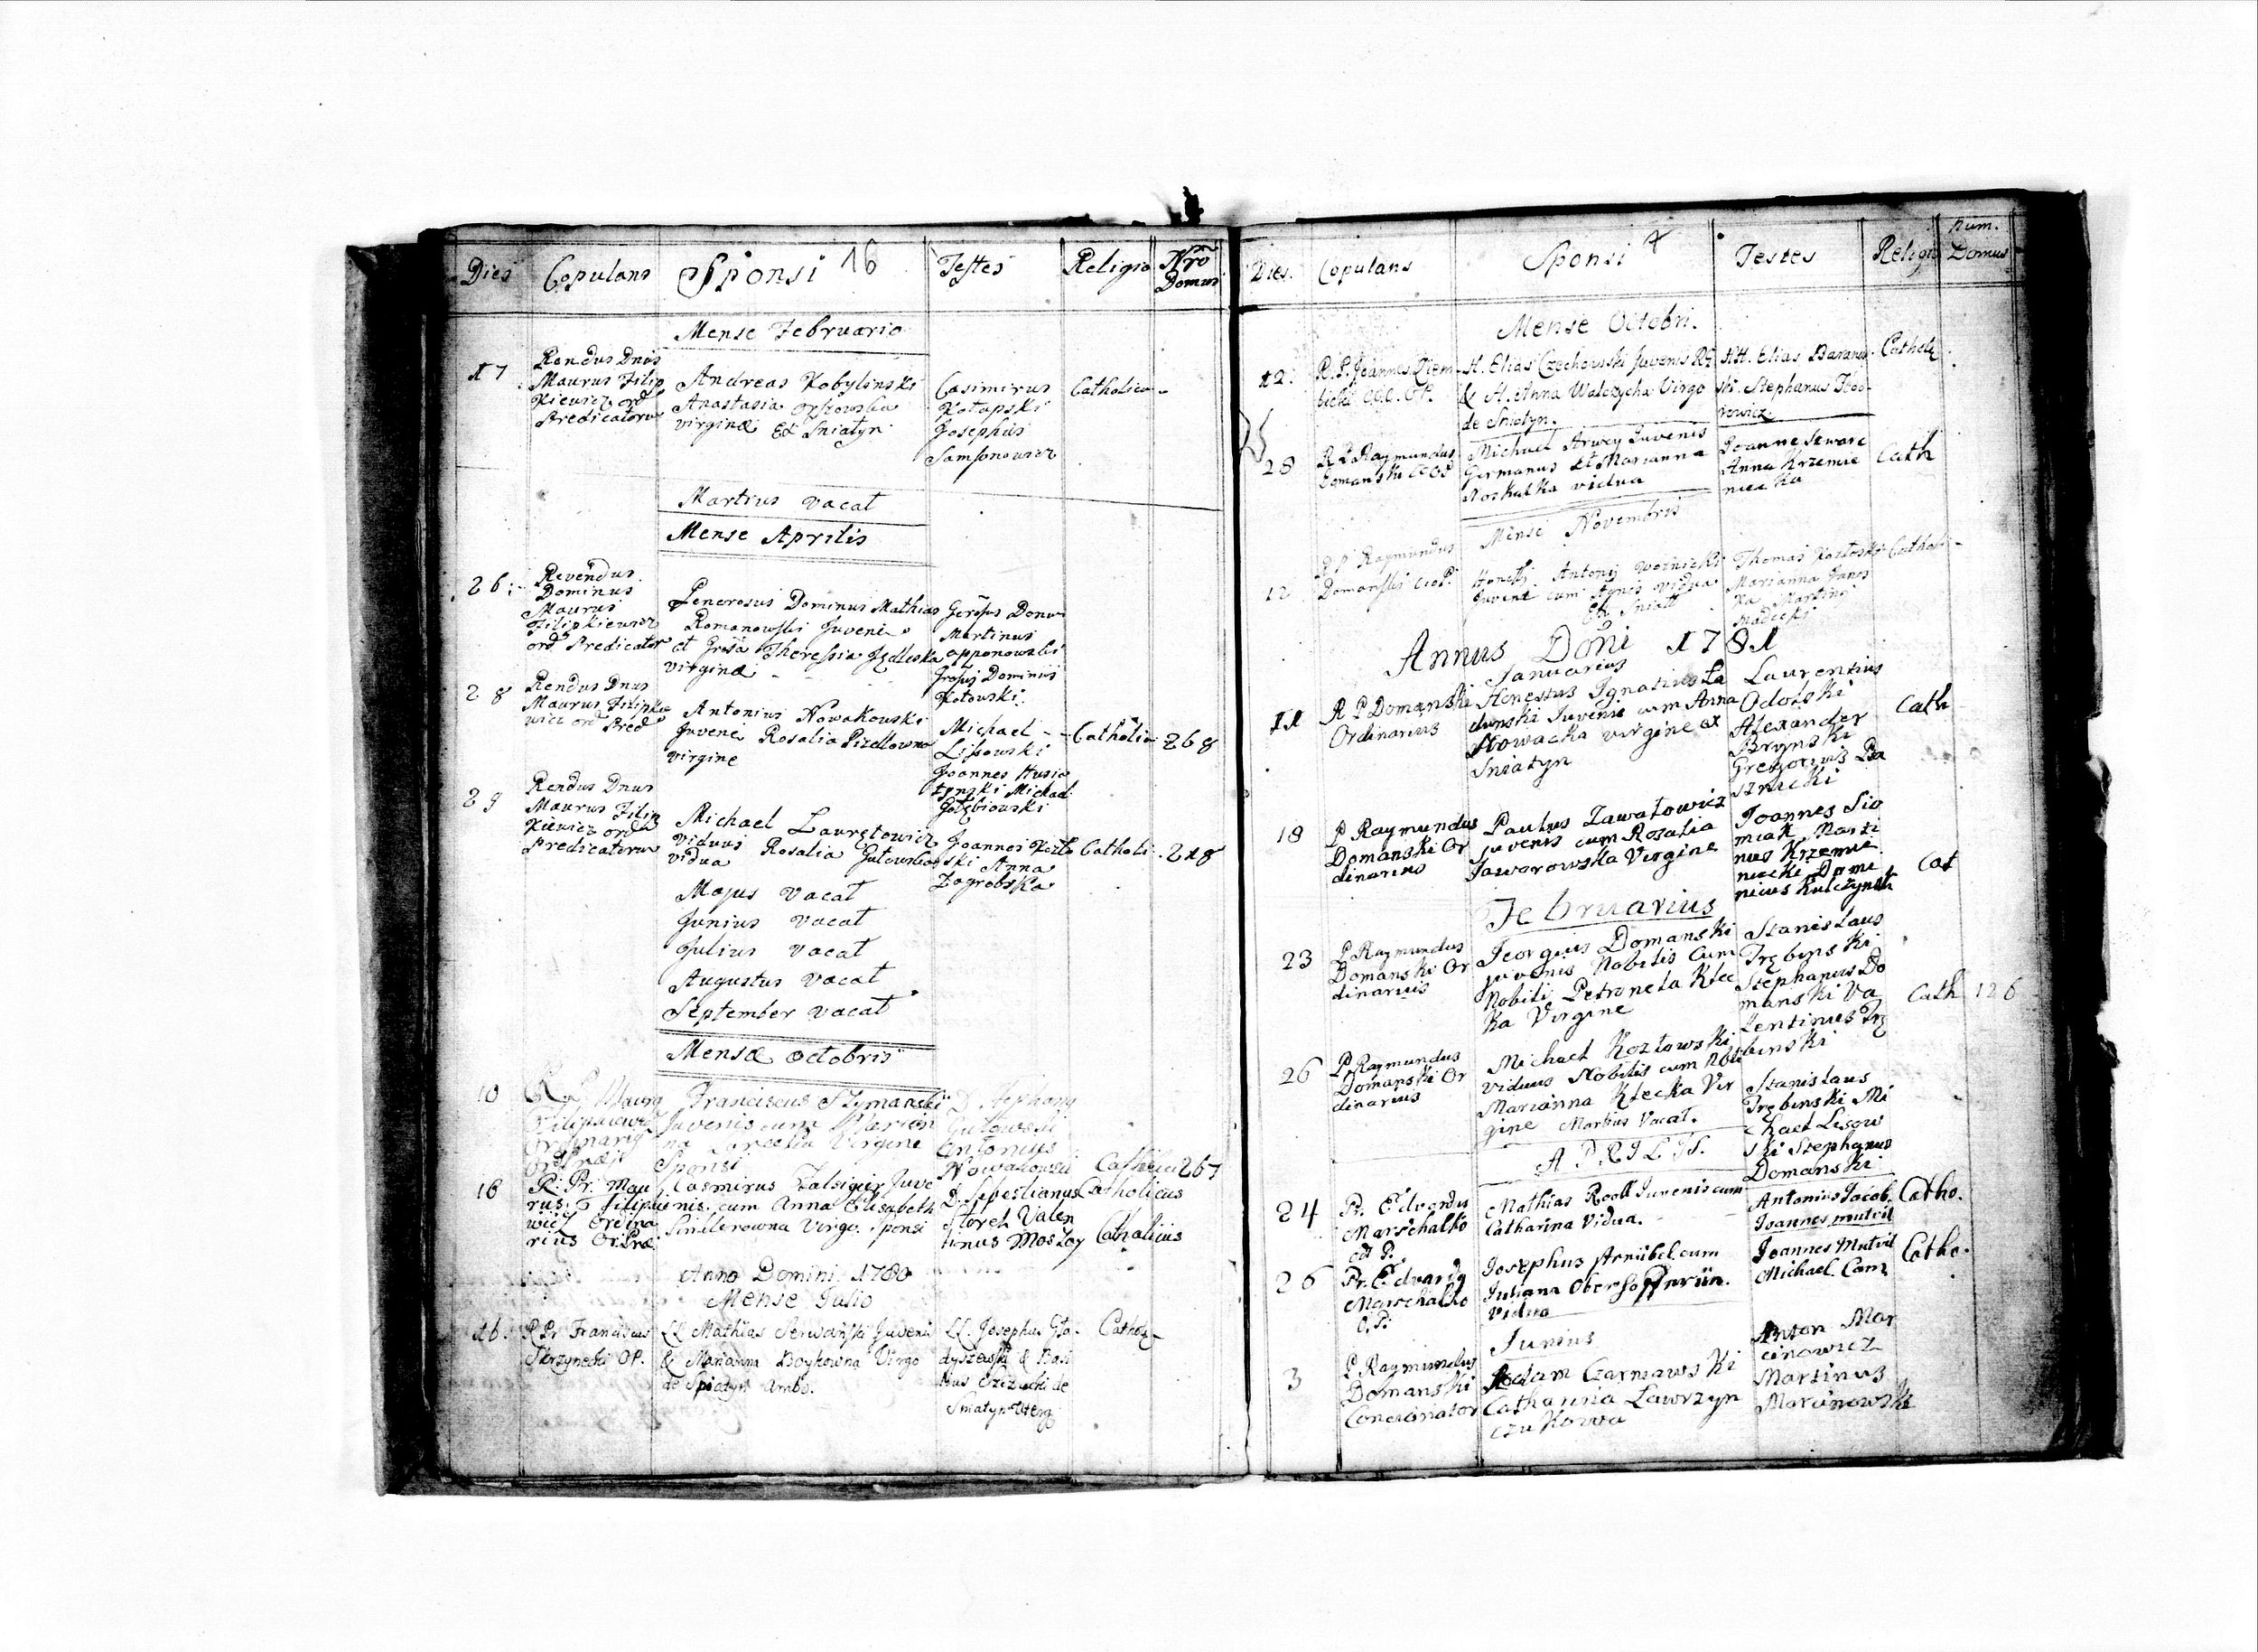 Dies Copulans Sponsi 16 Testes Religio Nro Domus
Mense Februario
17. Rendus Dnus
Maurus Filip
kiewicz ord
Predicatorum
Andreas Kobylinski
Anastasia
virginæ Ex Sniatyn
Casimirus
Kotapski
Josephus
Samsonowicz
Catholica
Martius vacat
Mense Aprilis
26. Revendus
Dominus
Maurus
Filipkiewicz
ord Predicator
Generosus Dominus Mathias
Romanowski Juvenis
et Theressia
virginæ
Martinus
Dominus
Kotowski
28 Rendus Dnus
Maurus Filipkie
wicz ord Pred
Antonius Nowakowski
Juvene Rosalia
virgine
Michael
Lissowski
Joannes
Michael
Gołębiowski
Catholic 268
29 Rendus Dnus
Maurus Filip
kiewicz ord
Predicatorum
Michael Lauretowicz
viduus Rosalia Gutowska
vidua
Joannes Kozło
ski Anna
Zagrobska
Catholi 218
Majus vacat
Junius vacat
Julius vacat
Augustus vacat
September vacat
Mensæ octobris
10 R. P. Maurg
Filipkiewicz
Ordinarig
Franciscus Szymanski
Juvenis cum Marian
na Virgine
Sponsi
D. Stephang
Gutowski
Antonius
Nowakowski
Catholicu 267
16 R: Pr: Mau
rus Filipkie
wicz Ordina
rius Or: Præ:
Casmirus Juve
nis cum Anna Elisabeth
Virgo. Sponsi
D. Sebestianus
Storch Valen
tinus Moslay
Catholicus
Catholicus
Anno Domini 1780
Mense Julio
16. R Pr Franciscus
Skrzynecki OP.
LL Mathias Juvenis
& Marianna Boykowna Virgo
de Sniatyn Ambo.
LL. Josephus Gła-
dyszewski & Basi
lius de
Sniatyn
Cathol
Dies. Copulans Sponsi 7 Testes Religio Num. Domus
Mense Octobri.
12. R. P. Joannes Ziem-
bicki
H. Elias Czechowski Juvenis
& H. Anna Walczycha Virgo
de Sniatyn.
HH. Elias Baranow-
ski. Stephanus Teo-
rowicz.
Cathol
28 R P Raymundus
Domanski
Michael Juvenis
Germanus et Marianna
Noskulka vidua
Joanne
Anna Krzemie
niecka
Cath
Mense Novembris
12 R P Raymundus
Domanski
Honesti Antonij Woznicki
Juvene cum Agnis vidua
Ex Sniatt
Thomas Kozłoski
Marianna
ka Martino
Madecki
Cathol
Annus Dōni 1781
Januarius
11 R P Domanski
Ordinarius
Honestus Ignatius La
dunski Juvenis cum Anna
Nowacka virgine ex
Sniatyn
Laurentius
Odolski
Alexander
Brynski
Gregorius Ba
sznicki
Cath
18 P Raymundus
Domanski Or
dinarius
Paulus Zawatowicz
juvenis cum Rosalia
Jaworowska Virgine
Joannes Sio
miak Marti
nus Krzemie
niecki Domi
nicus Kulczynski
Cat
Februarius
23 P Raymundus
Domanski Or
dinarius
Georgius Domanski
juvenis Nobilis cum
Nobili Petronela Klec
ka Virgine
Stanislaus
Trębinski
Stephanus Do
manski Va
lentinus Trę
binski
Cath 126
26 P Raymundus
Domanski Or
dinarius
Michael Kozłowski
viduus Nobilis cum Nobi
Marianna Klecka Vir
gine Martius Vacat.
Stanislaus
Trębinski Mi
chael Lisow
ski Stephanus
Domanski
APRILIS.
24 Pr. Edvardus
Marschalko
Od P.
Mathias Rooll Juvenis cum
Catharina Vidua.
Antonius Jacob.
Joannes mutvil
Catho.
26 Pr. Edvardg
Marschalko
O. P.
Josephus Arnübel cum
Juliana
Vidua
Joannes Mutvil
Michael Cam
Catho.
Junius
3 P Raymundus
Domanski
Concionator
Adam Czarnawski
Catharina Ławrzyn
czukowa
Anton Mar
cinowicz
Martinus
Marcinowski